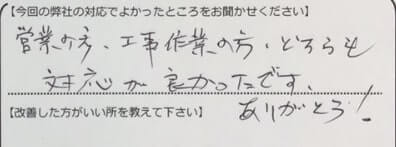 【今回の弊社の対応でよかったところをお聞かせください】
営業の方、工事作業の方、どちらも
対応が良かったです。
【改善した方がいい所を教えて下さい】
ありがとう!